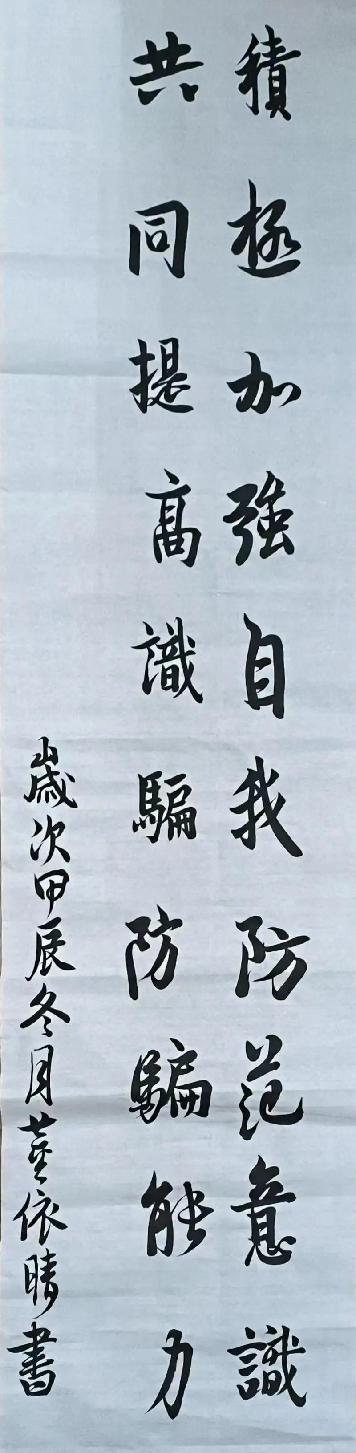 積極加強自我防范意識
共同提高識騙防騙能力
歲次甲辰冬月董依晴書